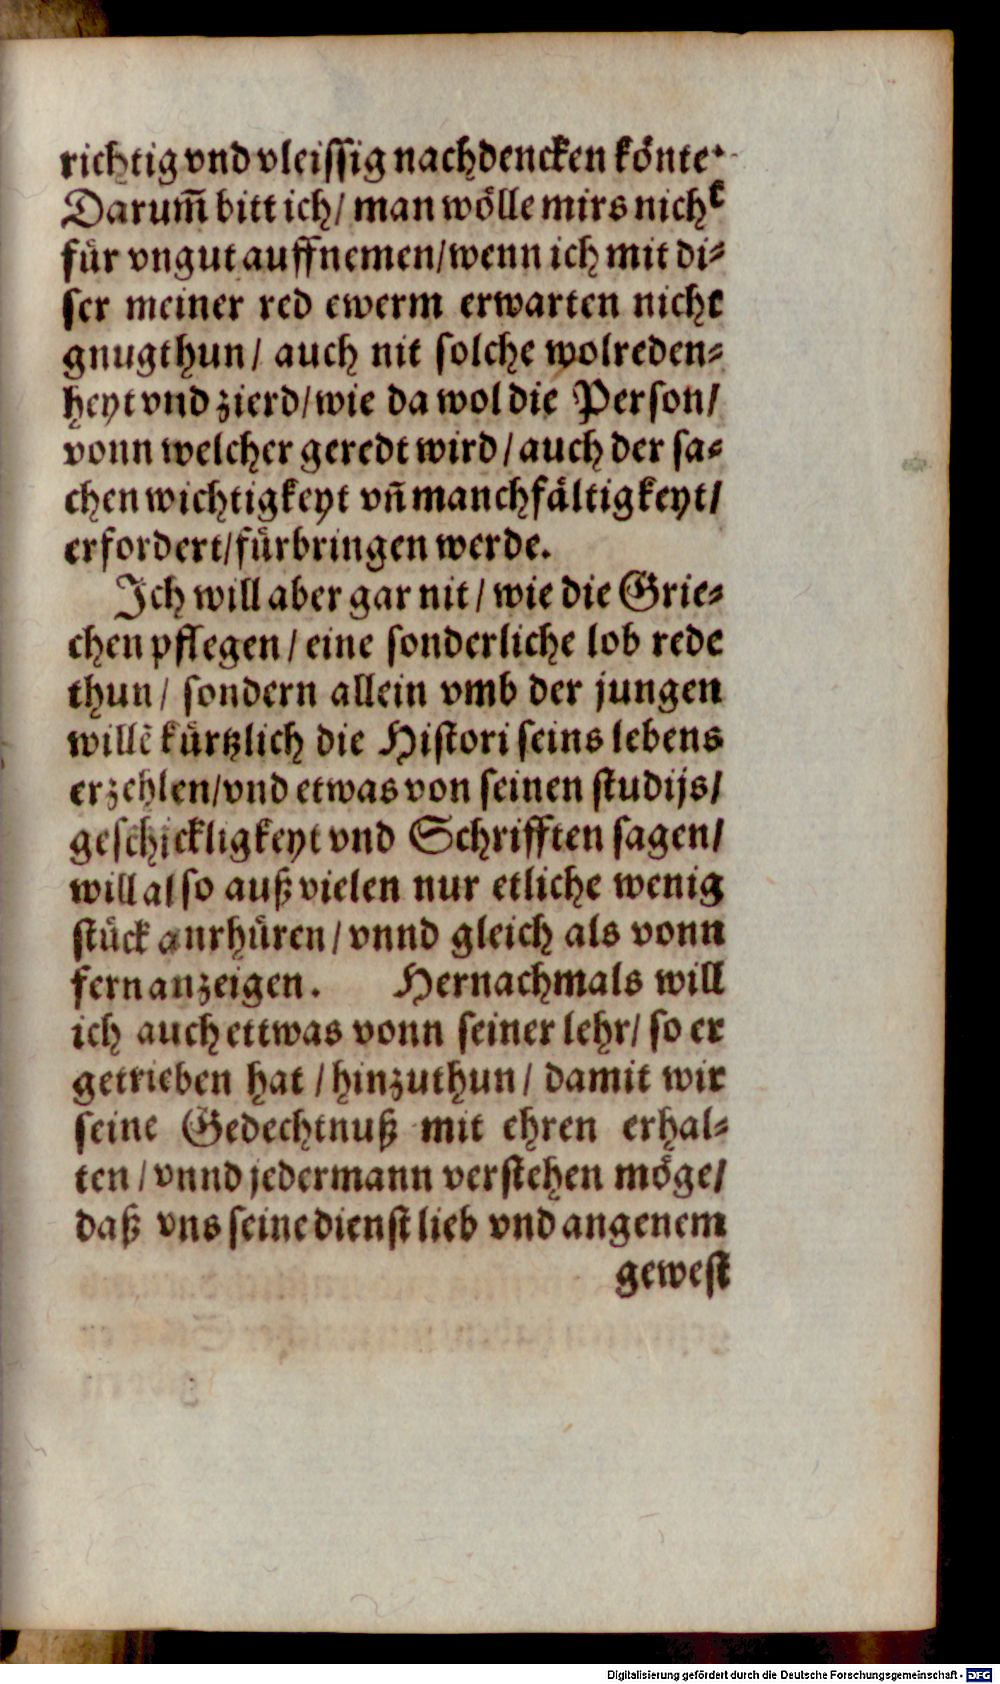 richtig vnd vleissig nachdencken könte.
Darum̃ bitt ich/ man wölle mirs nicht
für vngut auffnemen/wenn ich mit di⸗
ser meiner red ewerm erwarten nicht
gnugthun/ auch nit solche wolreden⸗
heyt vnd zierd/wie da wol die Person/
vonn welcher geredt wird/ auch der sa⸗
chen wichtigkeyt vñ manchfältigkeyt/
erfordert/fürbringen werde.
Ich will aber gar nit/ wie die Grie⸗
chen pflegen/ eine sonderliche lob rede
thun/ sondern allein vmb der jungen
willẽ kürtzlich die Histori seins lebens
erzehlen/vnd etwas von seinen studijs/
geschickligkeyt vnd Schrifften sagen/
will also auß vielen nur etliche wenig
stück anrhüren/ vnnd gleich als vonn
fern anzeigen. Hernachmals will
ich auch ettwas vonn seiner lehr/ so er
getrieben hat /hinzuthun/ damit wir
seine Gedechtnuß mit ehren erhal⸗
ten/ vnnd jedermann verstehen möge/
daß vns seine dienst lieb vnd angenem
gewest
Digitalisierung gefördert durch die Deutsche Forschungsgemeinschaft - DFG